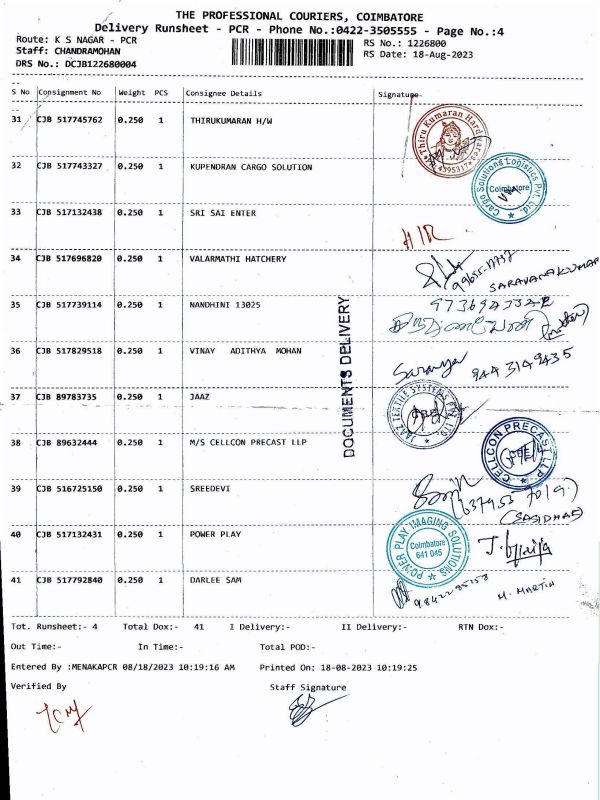 THE PROFESSIONAL COURIERS, COIMBATORE
Delivery Runsheet - PCR - Phone No.:0422-3505555 - Page No.:4
Route: K S NAGAR - PCR
RS No.: 1226800
Staff: CHANDRAMOHAN
RS Date: 18-Aug-2023
DRS No.: DCJB122680004
S No Consignment No Weight PCS Consignee Details Signature
31 CJB 517745762 0.250 1 THIRUKUMARAN H/W
Thiru Kumaran Hardwares
4395317
32 CJB 517743327 0.250 1 KUPENDRAN CARGO SOLUTION
Cargo Solutions Logistics Pvt. Ltd.
Coimbatore
33 CJB 517132438 0.250 1 SRI SAI ENTER
34 CJB 517696820 0.250 1 VALARMATHI HATCHERY
SARAVANAKUMAR
35 CJB 517739114 0.250 1 NANDHINI 13025
36 CJB 517829518 0.250 1 VINAY ADITHYA MOHAN
Saranya 9443149435
DOCUMENTS DELIVERY
37 CJB 89783735 0.250 1 JAAZ
JAAZ TEXTILE SYSTEMS PVT. LTD.
38 CJB 89632444 0.250 1 M/S CELLCON PRECAST LLP
CELLCON PRECAST LLP
39 CJB 516725150 0.250 1 SREEDEVI
(SASIDHAR)
40 CJB 517132431 0.250 1 POWER PLAY
POWER PLAY IMAGING SOLUTIONS
Coimbatore
641 045
41 CJB 517792840 0.250 1 DARLEE SAM
M. MARTIN
Tot. Runsheet:- 4 Total Dox:- 41 I Delivery:- II Delivery:- RTN Dox:-
Out Time:- In Time:- Total POD:-
Entered By :MENAKAPCR 08/18/2023 10:19:16 AM Printed On: 18-08-2023 10:19:25
Verified By Staff Signature